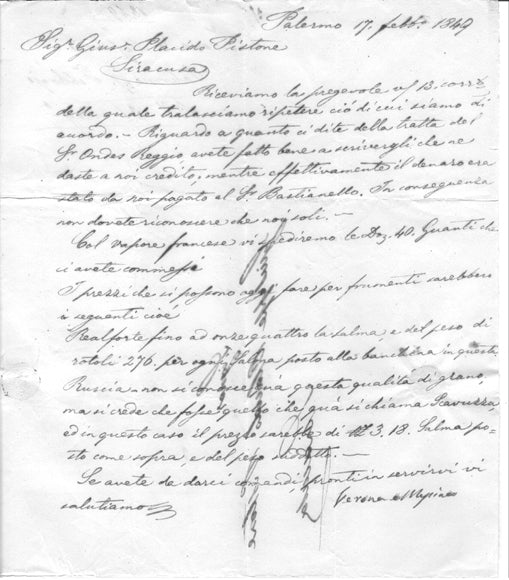 Palermo 17. febb.º 1849
Sig.r Gius.e Placido Pistone
Siracusa
Riceviamo la pregevole v/ 13. corr.e
della quale tralasciamo ripetere ciò di cui siamo di
accordo. - Riguardo a quanto ci dite della tratta del
S.r Ondes Reggio avete fatto bene a scrivergli che ne
daste a noi credito, mentre effettivamente il denaro era
stato da noi pagato al S.r Bastianello. In conseguenza
non dovete riconoscere che noi soli. -
Col vapore francese vi spediremo le Doz. 40. Guanti che
ci avete commesse
I prezzi che si possono oggi fare per frumenti sarebbero
i seguenti cioè
Realforte fino ad onze quattro la salma, e del peso di
rotoli 276. per ogni Salma posto alla banchina in questa
Ruscia - non si conosce quà questa qualità di grano,
ma si crede che fosse quello che quà si chiama Scavuzza,
ed in questo caso il prezzo sarebbe di 3. 18. Salma po-
sto come sopra, e del peso suddetto. -
Se avete da darci comandi, pronti in servirvi vi
salutiamo
Verona e